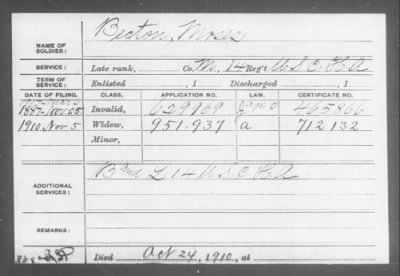 Becton, Moses
NAME OF SOLDIER:
SERVICE: Late rank, Co. M, 14 Reg't U S C. H A
TERM OF SERVICE: Enlisted , 1 Discharged , 1
DATE OF FILING. CLASS. APPLICATION NO. LAW. CERTIFICATE NO.
1887 Invalid, 629869 465866
1910 Nov 5 Widow, 951.937 a 712 132
Minor,
ADDITIONAL SERVICES: L 14 U S C H A
REMARKS:
Died Oct 24, 1910, at